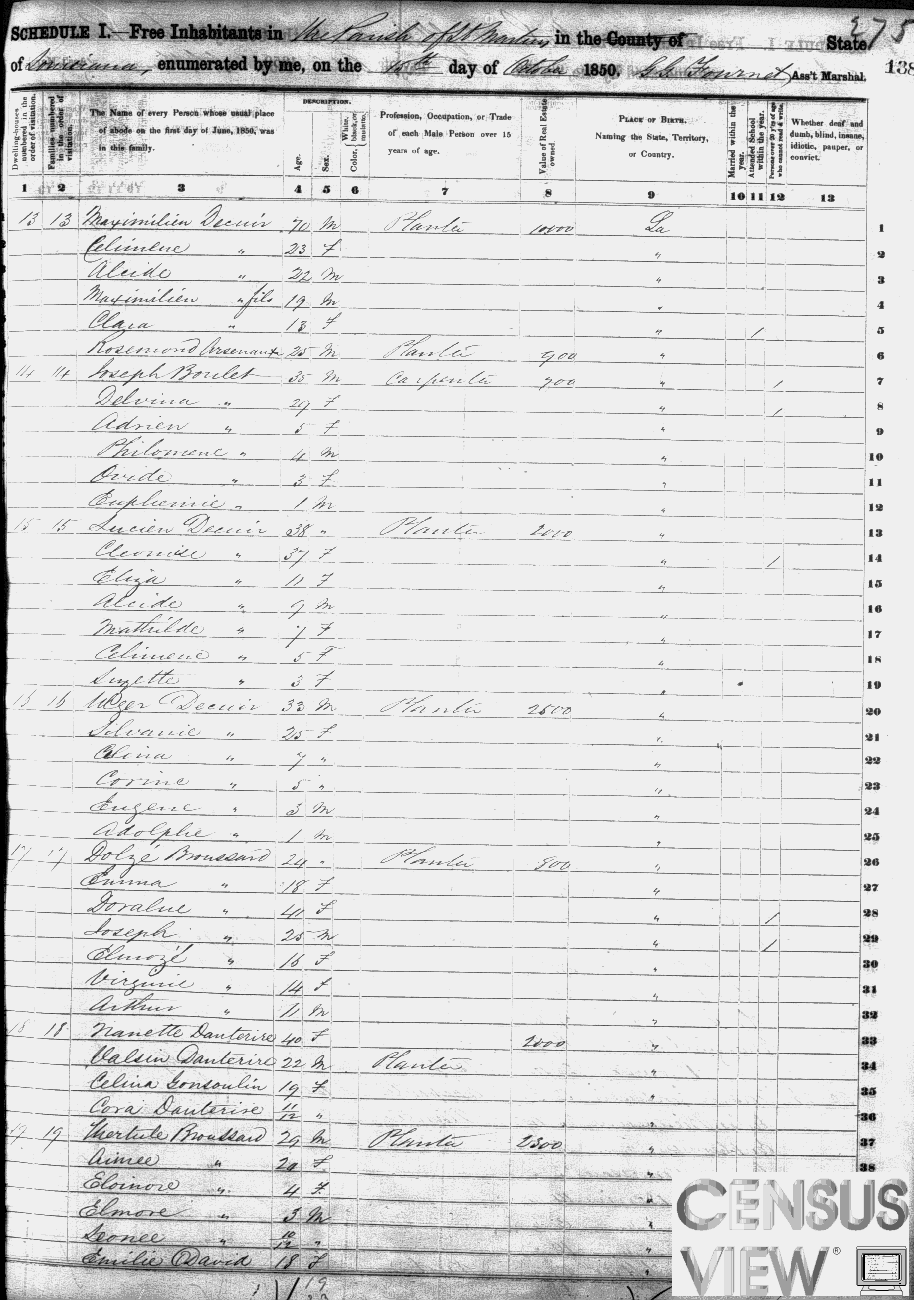 SCHEDULE I.—Free Inhabitants in the Parish of St Martin in the County of State 275
of Louisiana, enumerated by me, on the 15th day of October 1850. Fournet Ass't Marshal. 138
Dwelling-houses numbered in the order of visitation.
Families numbered in the order of visitation.
The Name of every Person whose usual place of abode on the first day of June, 1850, was in this family.
DESCRIPTION.
Age.
Sex.
Color, White, black, or mulatto.
Profession, Occupation, or Trade of each Male Person over 15 years of age.
Value of Real Estate owned.
PLACE OF BIRTH. Naming the State, Territory, or Country.
Married within the year.
Attended School within the year.
Persons over 20 y'rs of age who cannot read & write.
Whether deaf and dumb, blind, insane, idiotic, pauper, or convict.
1 2 3 4 5 6 7 8 9 10 11 12 13
13 13 Maximilien Decuir 70 M Planter 10000 La 1
Celimene " 23 F " 2
Alcide " 22 M " 3
Maximilien " fils 19 M " 4
Clara " 13 F " 1 5
Rosemond Arsenaux 25 M Planter 900 " 6
14 14 Joseph Boulet 35 M Carpenter 700 " 1 7
Delvina " 27 F " 1 8
Adrien " 5 F " 9
Philomene " 4 M " 10
Ovide " 3 F " 11
Euphemie " 1 M " 12
15 15 Lucien Decuir 38 " Planter 2000 " 13
Cleonise " 37 F " 1 14
Eliza " 11 F " 15
Alcide " 9 M " 16
Mathilde " 7 F " 17
Celimene " 5 F " 18
Suzette " 3 F " 19
16 16 Uger Decuir 33 M Planter 2500 " 20
Silvanie " 25 F " 21
Celina " 7 " " 22
Corine " 5 " " 23
Eugene " 3 M " 24
Adolphe " 1 M " 25
17 17 Dolzé Broussard 24 " Planter 800 " 26
Emma " 18 F " 27
Doralue " 40 F " 1 28
Joseph " 25 M " 1 29
Elmozé " 16 F " 30
Virginie " 14 F " 31
Arthur " 11 M " 32
18 18 Nanette Dauterive 40 F 2000 " 33
Valsin Dauterive 22 M Planter " 34
Celina Gonsoulin 19 F " 35
Cora Dauterive 11/12 " " 36
19 19 Thertule Broussard 29 M Planter 2300 " 37
Aimee " 20 F " 38
Eloinore " 4 F "
Elmore " 3 M "
Leonee " 10/12 " "
Emilie David 18 F "
CENSUS
VIEW®